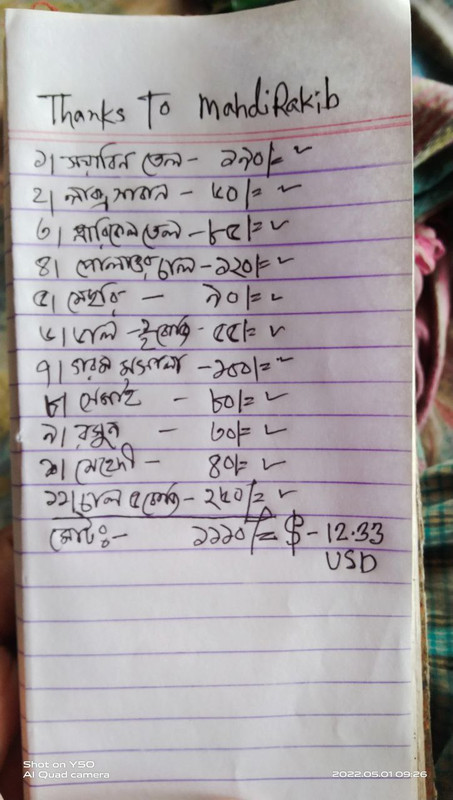 Thanks To MahdiRakib
১| সয়াবিন তেল - ১৯০/= ✓
২| লাক্স সাবান - ৫০/= ✓
৩| নারিকেল তেল - ৮৫/= ✓
৪| পোলাওর চাল - ১২০/= ✓
৫| - ৯০/= ✓
৬| ডাল - ½ কেজি - ৫৫/= ✓
৭| গরম মসলা - ১০০/= ✓
৮| সেমাই - ৮০/= ✓
৯| রসুন - ৬০/= ✓
১০| মেহেদী - ৪০/= ✓
১১| চাল ৫ কেজি - ২৫০/= ✓
মোটঃ- ১১১০/= $ - 12.33
USD
Shot on Y50
AI Quad camera
2022.05.01 09:26